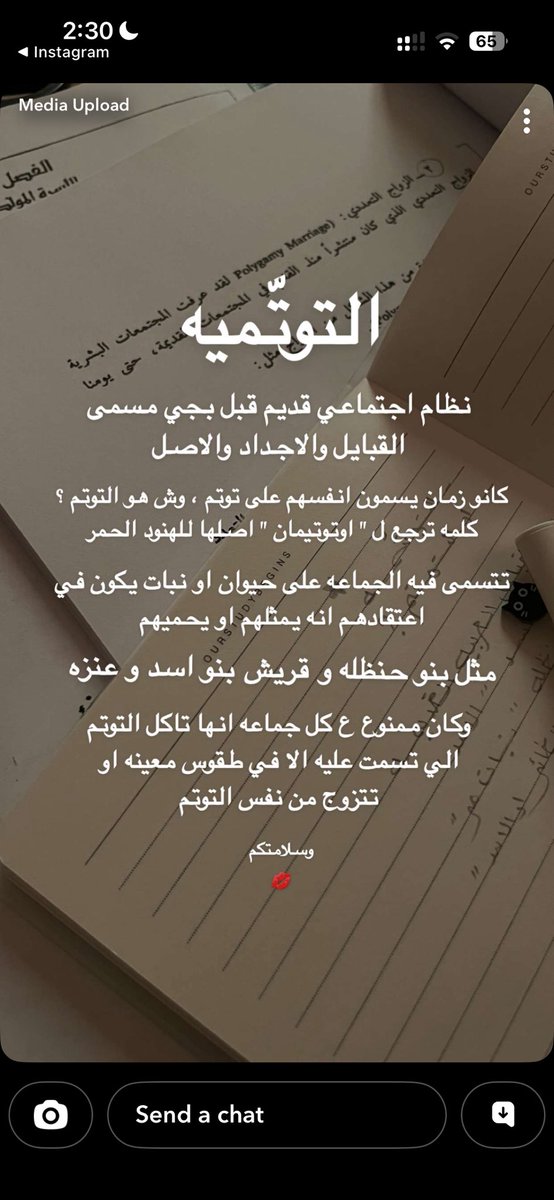 2:30
Instagram
65
Media Upload
الفصل
٢- الزواج التعددي: (Polygamy Marriage) لقد عرفت المجتمعات البشرية
التوتّميه
نظام اجتماعي قديم قبل يجي مسمى
القبايل والاجداد والاصل
كانو زمان يسمون انفسهم على توتم ، وش هو التوتم ؟
كلمه ترجع ل " اوتوتيمان " اصلها للهنود الحمر
تتسمى فيه الجماعه على حيوان او نبات يكون في
اعتقادهم انه يمثلهم او يحميهم
مثل بنو حنظله و قريش بنو اسد و عنزه
وكان ممنوع ع كل جماعه انها تاكل التوتم
الي تسمت عليه الا في طقوس معينه او
تتزوج من نفس التوتم
وسلامتكم
OURSTUDYBEGINS
Send a chat